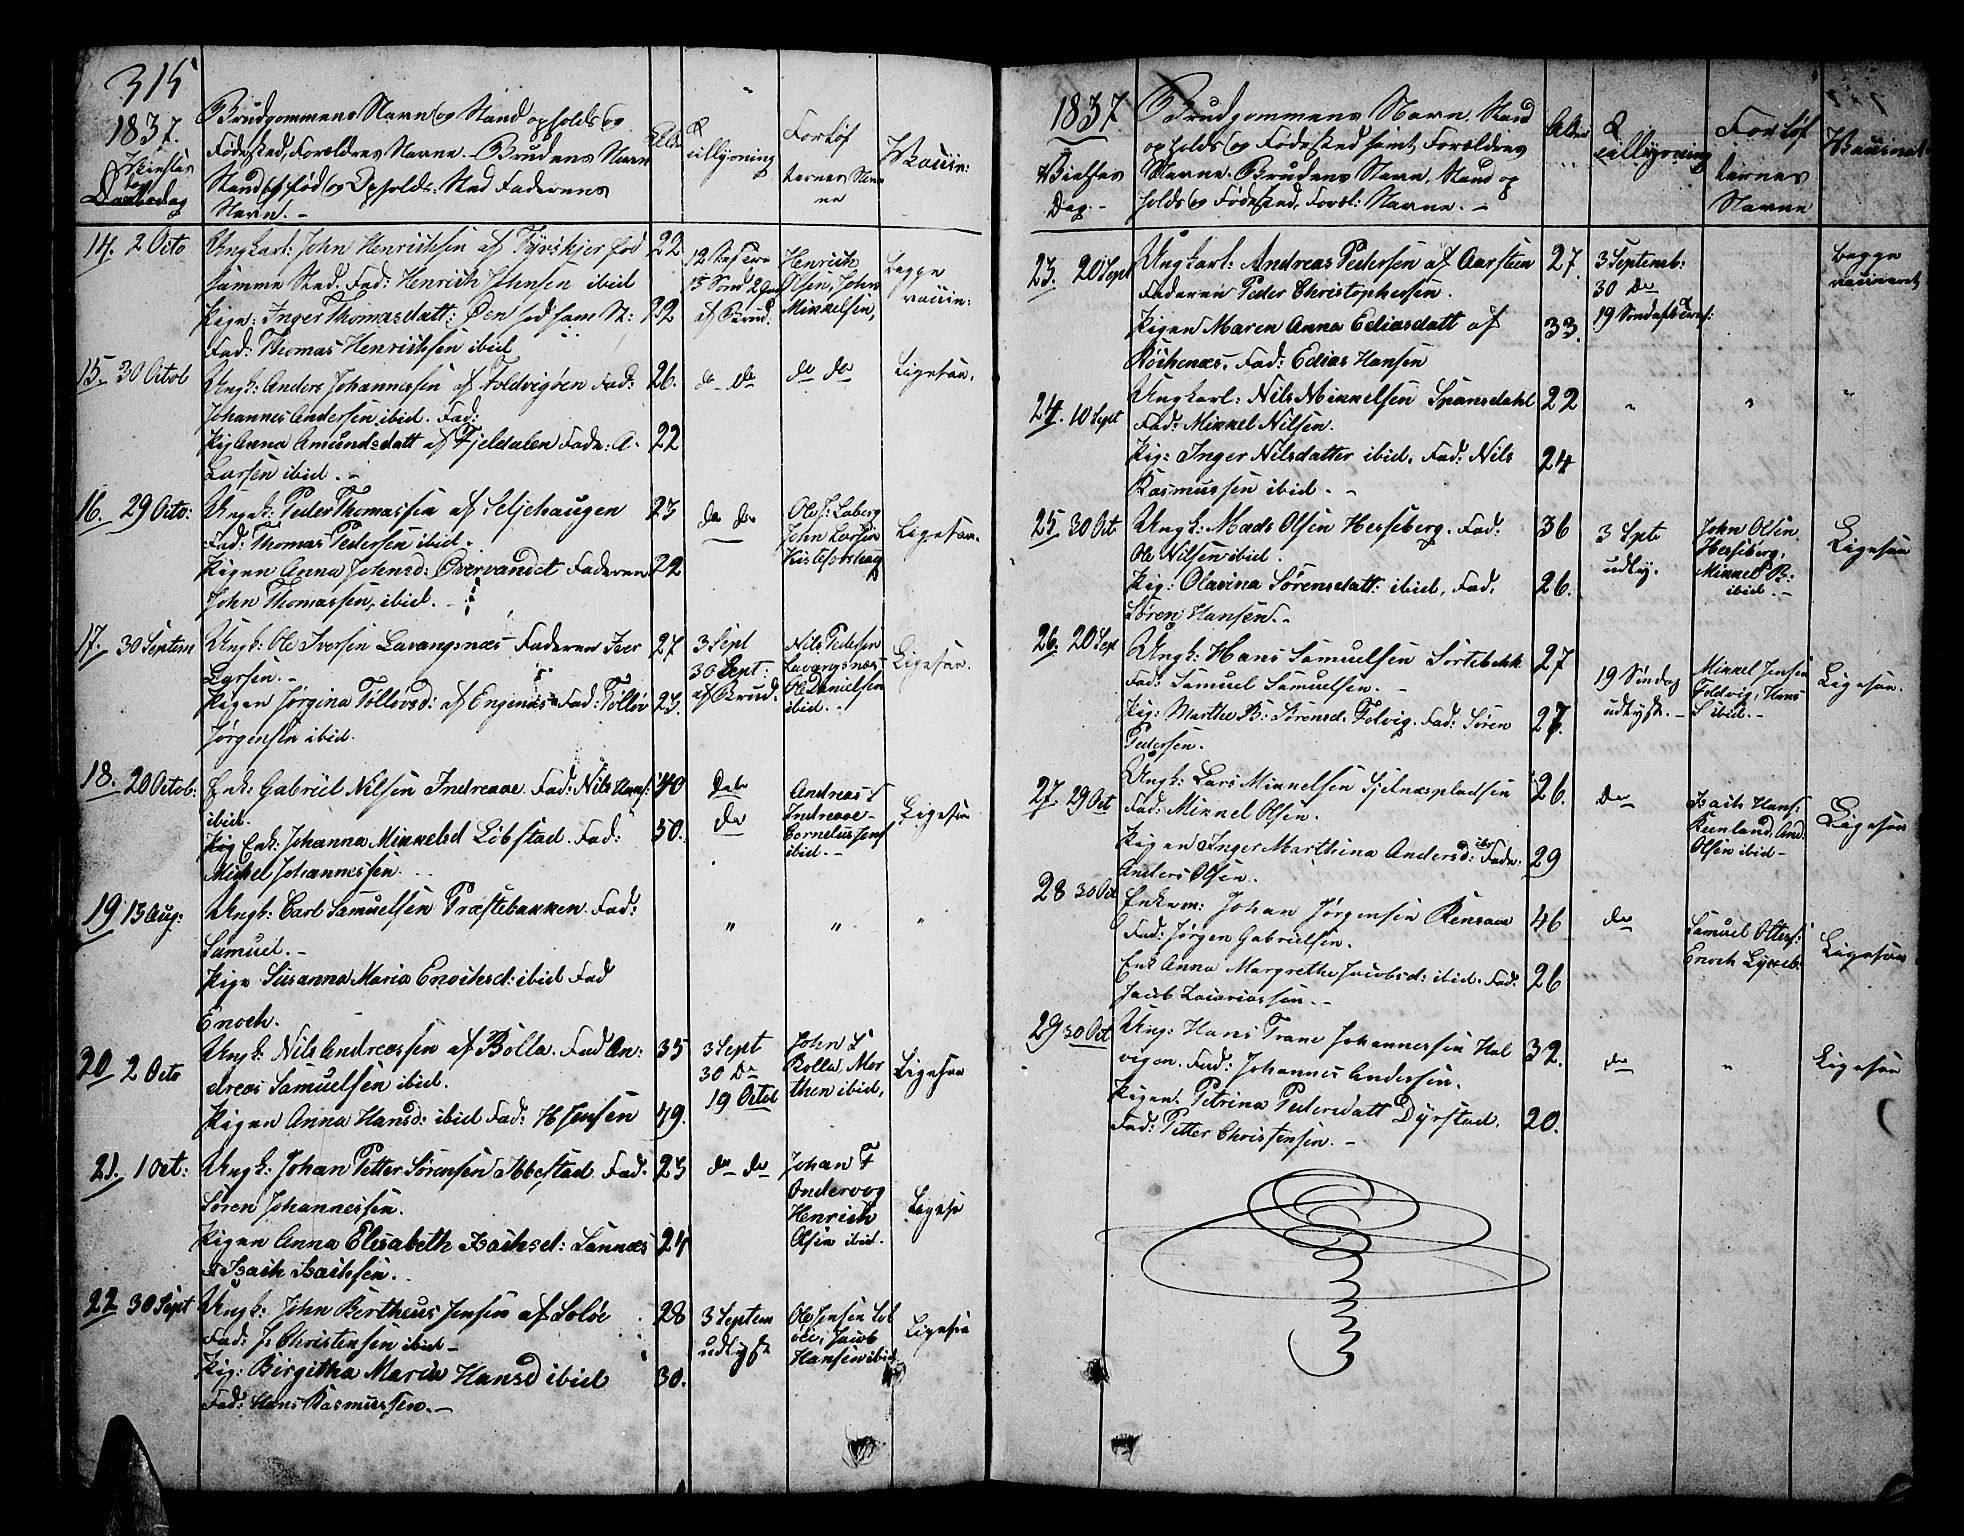 315
1837.
Vielses
Brudgommens Navn og Stand opholds og
Fødested, Forældres Navne. Brudens Navn
Stand og Føde og Opholds. Sted Faderens
Navn. -
Tillysning
Forlof
Vaccin:
14. 2 Octo
Ungkarl: John Henrichsen af
samme Sted. Fad: Henrich Johnsen ibid
22
Pigen: Inger Thomasdatt: fød sam St:
22
Fad: Thomas Henrichsen ibid
af Brud:
Henrich
Olsen, John
Mikkelsen,
begge
vaccin:
15. 30 Octob
Ungk: Anders Johannessen af Foldvigøren Fad:
26.
Johannes Andersen ibid. Fad:
Pig Anna Amundsdatt af Fjeldalen Fad: A-
22
Larsen ibid. -
do do
do do
Ligesaa.
16. 29 Octo:
Ungk: Peder Thomassen af Seljehaugen
23
Fad: Thomas Pedersen ibid.
Pigen Anna Johnsd: Øvervandet Faderen
22
John Thomassen, ibid. -
do do
Ole J: Laberg
John Larsen
Ligesaa.
17. 30 Septem
Ungk: Ole Iversen Lavangsnæs Faderen Iver
27
Larsen. -
Pigen Jørgina Tollevsd: af Engenæs Fad: Tollev
23.
Jørgensen ibid.
3 Sept
30 Sept:
af Brud.
Nils Pedersen
Lavangsnæs
Ole Danielsen
ibid.
Ligesaa.
18. 20 Octob:
Enk: Gabriel Nilsen Indreaae. Fad: Nils Hans:
40
ibid.
Pig Enk: Johanna Mikkelsd Libstad. Fad:
50.
Michel Johannessen.
do
Andreas
Indreaae
Cornelius Jens
ibid. -
Ligesaa
19 13 Aug:
Ungk: Carl Samuelsen Præstebakken. Fad:
Samuel. -
Pige Susanna Maria Enochsd: ibid Fad
Enoch.
" " "
20 2 Octo
Ungk: Nils Andreassen af Bolla. Fad An:
35
dreas Samuelsen ibid.
Pigen Anna Hansd: ibid Fad: H Jensen
49.
3 Sept
30 Do
19 Octob
John
Bolla, Mor
then ibid,
Ligesaa
21. 1 Oct:
Ungk: Johan Petter Sørensen Ibbestad. Fad:
23
Søren Johannessen.
Pigen Anna Elisabeth Isachsd: Sannæs
24
F Isach Isachsen.
do do
Johan
Henrich
Olsen ibid.
Ligesa
22 30 Sept
Ungk: John Bertheus Jensen af Soløe
28
Fad: J. Christensen ibid -
Pig: Birgitha Maria Hansd ibid
30.
Fad: Hans Rasmussen. -
3 Septem
udlyst
Ole Jensen Sol
øe, Jacob
Hansen ibid
Ligesaa
1837
Vielses
Dag. -
Brudgommens Navn, Stand
opholds og Fødested samt Forældres
Navne. Brudens Navn, Stand op
holds og Fødested, Foræl: Navne. -
Alder
Tillysning
Forlof
vernes
Navne
23. 20 Sept
Ungkarl: Andreas Pedersen af Aarsteen
27.
Faderen Peder Christophersen.
Pigen Maren Anna Ediasdatt af
33.
Røchenæs. Fad: Edias Hansen
3 Septemb:
30 Do
begge
vaccineret
24. 10 Sept
Ungkarl: Nils Mikkelsen Spansdahl
22
Fad: Mikkel Nilsen.
Pig: Inger Nilsdatter ibid. Fad: Nils
24
Rasmussen ibid. -
" " "
25 30 Oct
Ungk: Mads Olsen Hersiberg. Fad:
36
Ole Nilsen ibid.
Pig: Olavina Sørensdatt: ibid. Fad.
26.
Søren Hansen. -
3 Spt
udly.
John Olsen
Hersiberg.
Mikkel B:
ibid. -
Ligesaa
26. 20 Sept
Ungk: Hans Samuelsen Sortebekk
27
Fad: Samuel Samuelsen. -
Pig: Marthe B: Sørensd. Folvig. Fad: Søren
27.
Pedersen.
19 Søndag
udlyst. -
Mikkel Jensen
Foldvig, Hans
S ibid. -
Ligesaa.
27. 29 Oct
Ungk: Lars Mikkelsen
26.
Fad: Mikkel Olsen.
Pigen Inger Marthina Andersd: ibd Fad:
29
Anders Olsen.
do
Isach Hans:
Olsen ibid -
Ligesaa
28 30 Oct
Enkem: Johan Jørgensen Rensaae
46
Fad: Jørgen Gabrielsen.
Enk Anna Margrethe Jacobsd: ibid. Fad:
26
Jacob Zacariassen. -
do
Samuel Otters:
Enoch
Ligesaa
29 30 Oct
Ung: Hans Trane Johannessen Hal
32.
vigen. Fad: Johannes Andersen.
Pigen. Petrina Pedersdatt Dyrstad.
20.
Fad: Petter Christensen. -
do
"
Ligesaa